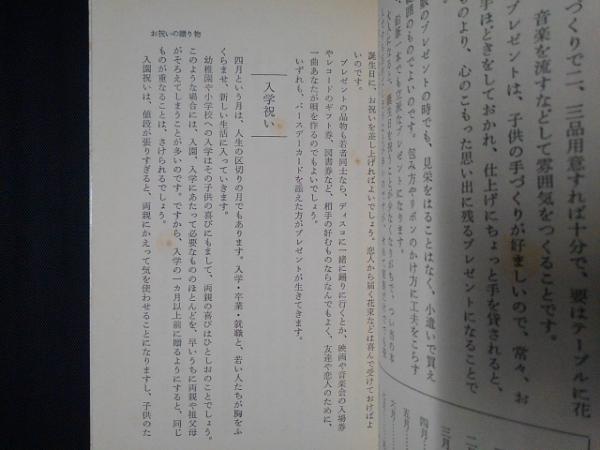 づくりで二、三品用意すれば十分で、要はテーブルに花
音楽を流すなどして雰囲気をつくることです。
プレゼントは、子供の手づくりが好ましいので、常々、お
手ほどきをしておかれ、仕上げにちょっと手を貸されると、
ものより、心のこもった思い出に残るプレゼントになることで
のプレゼントの時でも、見栄をはることはなく、小遣いで買え
囲のものでよいのです。包み方やリボンのかけ方に工夫をこらす
プレゼントになります。
三月
四月
五月
六月
お祝いの贈り物
誕生日に、お祝いを差し上げればよいでしょう。恋人から届く花束などは喜んで受けておけばよ
いのです。
プレゼントの品物も若者同士なら、ディスコに一緒に踊りに行くとか、映画や音楽会の入場券
やレコードのギフト券、図書券など、相手の好むものならなんでもよく、友達や恋人のために、
一曲あなたが唄を作るのでもよいでしょう。
いずれも、バースデーカードを添えた方がプレゼントが生きてきます。
入学祝い
四月という月は、人生の区切りの月でもあります。入学・卒業・就職と、若い人たちが胸をふ
くらませ、新しい生活に入っていきます。
幼稚園や小学校への入学はその子供の喜びにもまして、両親の喜びはひとしおのことでしょう。
このような場合には、入園、入学にあたって必要なもののほとんどを、早いうちに両親や祖父母
がそろえてしまうことが多いのです。ですから、入学の一カ月以上前に贈るようにすると、同じ
ものが重なることは、さけられるでしょう。
入園祝いは、値段が張りすぎると、両親にかえって気を使わせることになりますし、子供のた